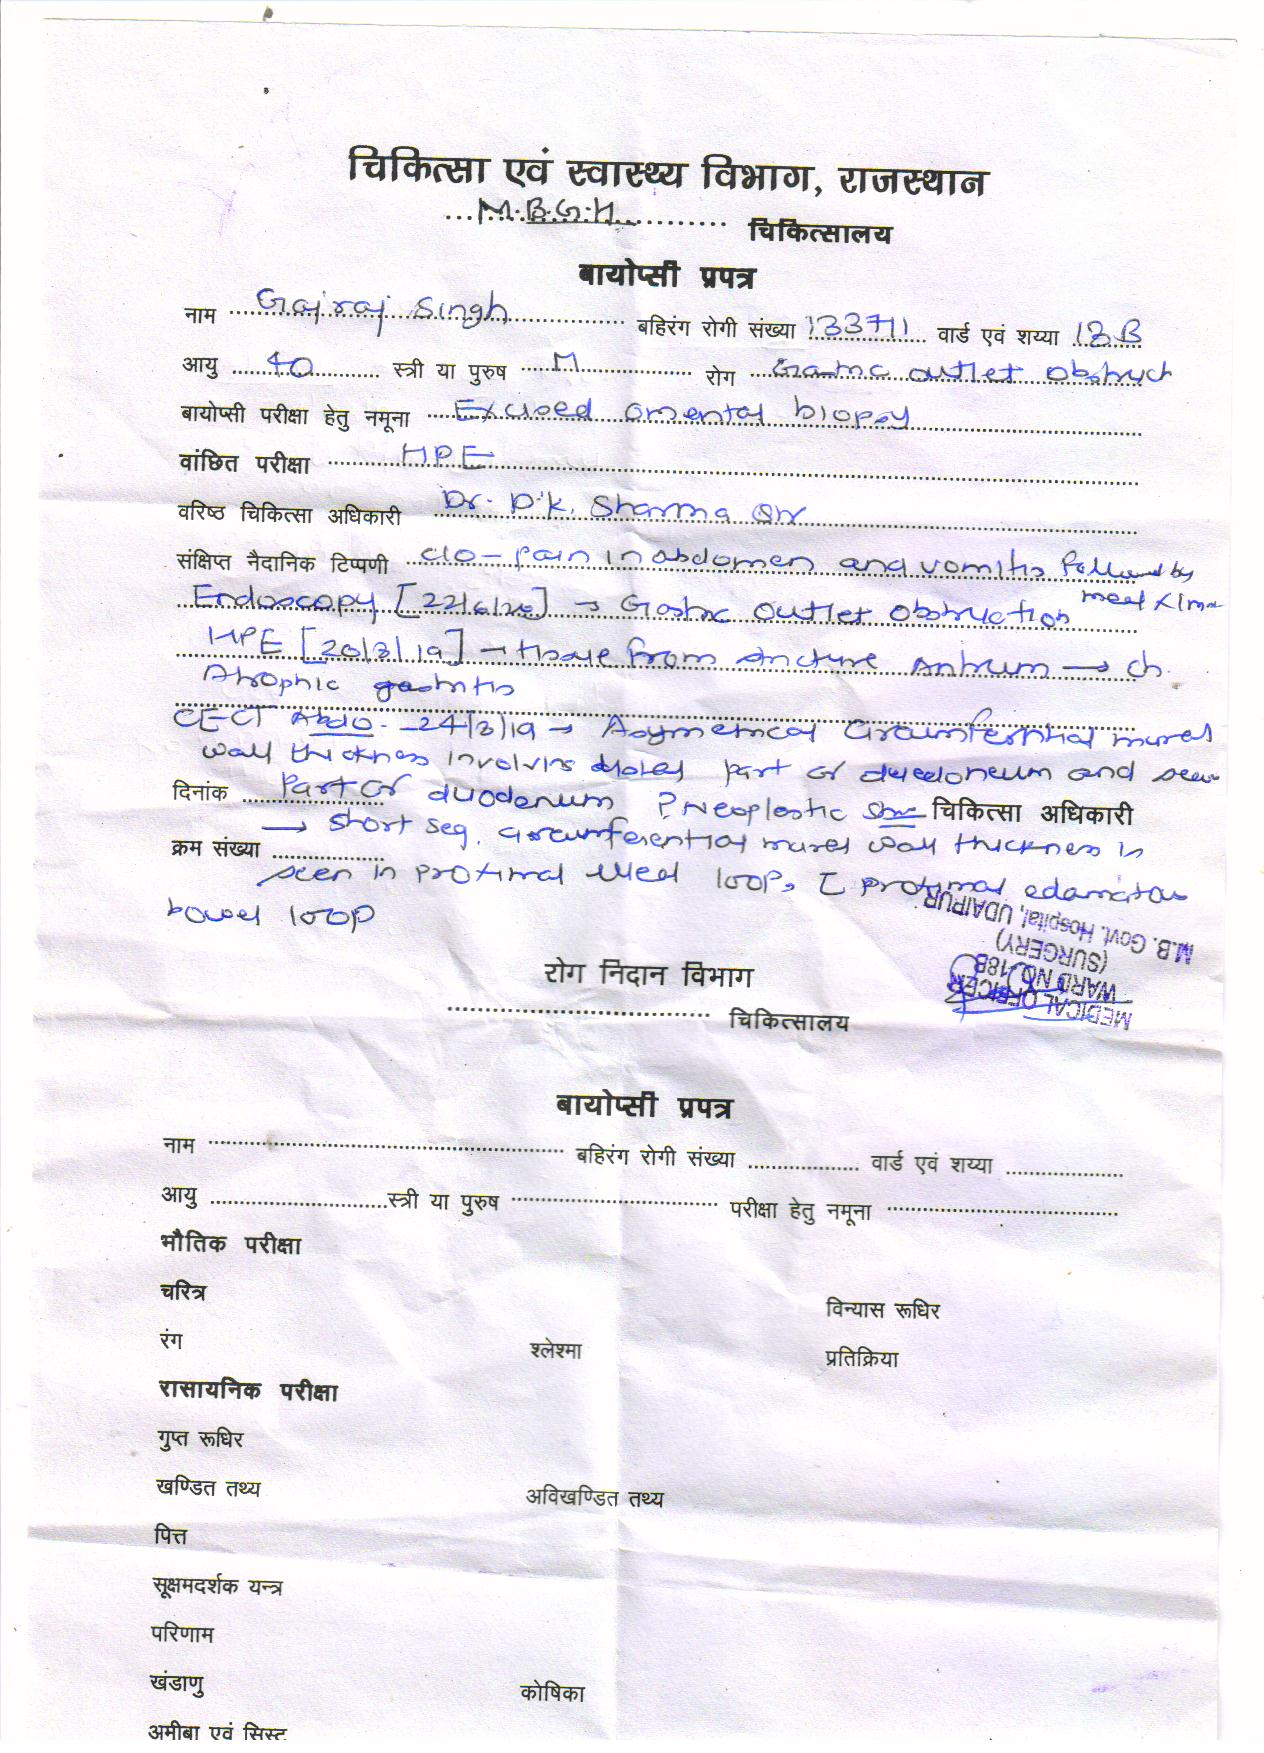 चिकित्सा एवं स्वास्थ्य विभाग, राजस्थान
M.B.G.H. चिकित्सालय
बायोप्सी प्रपत्र
नाम Gajraj Singh बहिरंग रोगी संख्या 133711 वार्ड एवं शय्या 13B
आयु 40 स्त्री या पुरुष M रोग Gastric outlet obstruct
बायोप्सी परीक्षा हेतु नमूना Excised omental biopsy
वांछित परीक्षा HPE
वरिष्ठ चिकित्सा अधिकारी Dr. D.K. Sharma
संक्षिप्त नैदानिक टिप्पणी c/o - pain in abdomen and vomitis followed by
meal
Endoscopy → Gastric outlet obstruction
HPE [20/3/19] → tissue from stricture Antrum → ch.
Atrophic gastritis
CECT Abdo. - 24/3/19 → Asymetrical Circumferential mural
wall thickness involving part of and
दिनांक part of duodenum ? Neoplastic चिकित्सा अधिकारी
→ short seg. circumferential mural wall thickness is
क्रम संख्या
seen in proximal loop, proximal edamatous
bowel loop
M.B. Govt. Hospital, UDAIPUR
(SURGERY)
WARD NO. 18B
MEDICAL OFFICER
रोग निदान विभाग
चिकित्सालय
बायोप्सी प्रपत्र
नाम बहिरंग रोगी संख्या वार्ड एवं शय्या
आयु स्त्री या पुरुष परीक्षा हेतु नमूना
भौतिक परीक्षा
चरित्र विन्यास रूधिर
रंग श्लेश्मा प्रतिक्रिया
रासायनिक परीक्षा
गुप्त रूधिर
खण्डित तथ्य अविखण्डित तथ्य
पित्त
सूक्षमदर्शक यन्त्र
परिणाम
खंडाणु कोषिका
अमीबा एवं सिस्ट